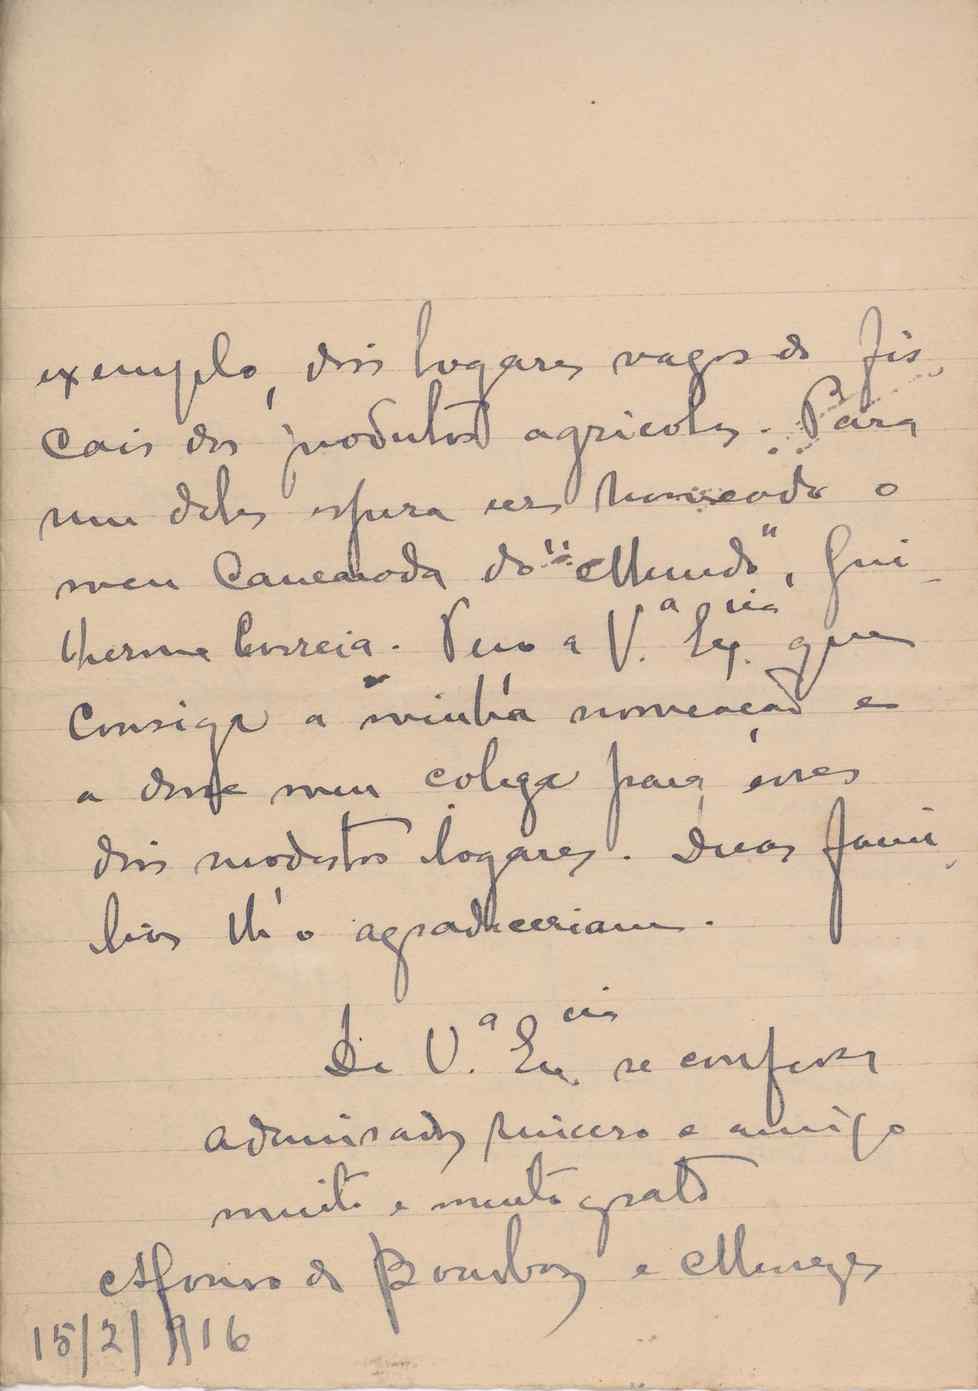 exemplo, dois logares vagos de fis-
cais dos produtos agricolas. Para
um deles espera ser nomeado o
meu camarada do "Mundo", Gui-
lherme Correia. Peço a V.ª Ex.cia que
consiga a minha nomeação e
a desse meu colega para esses
dois modestos logares. Duas fami-
lias lh'o agradeceriam.
De V.ª Ex.cia se confessa
admirador sincero e amigo
muito e muito grato
Afonso de Bourbon e Menezes
15/2/916